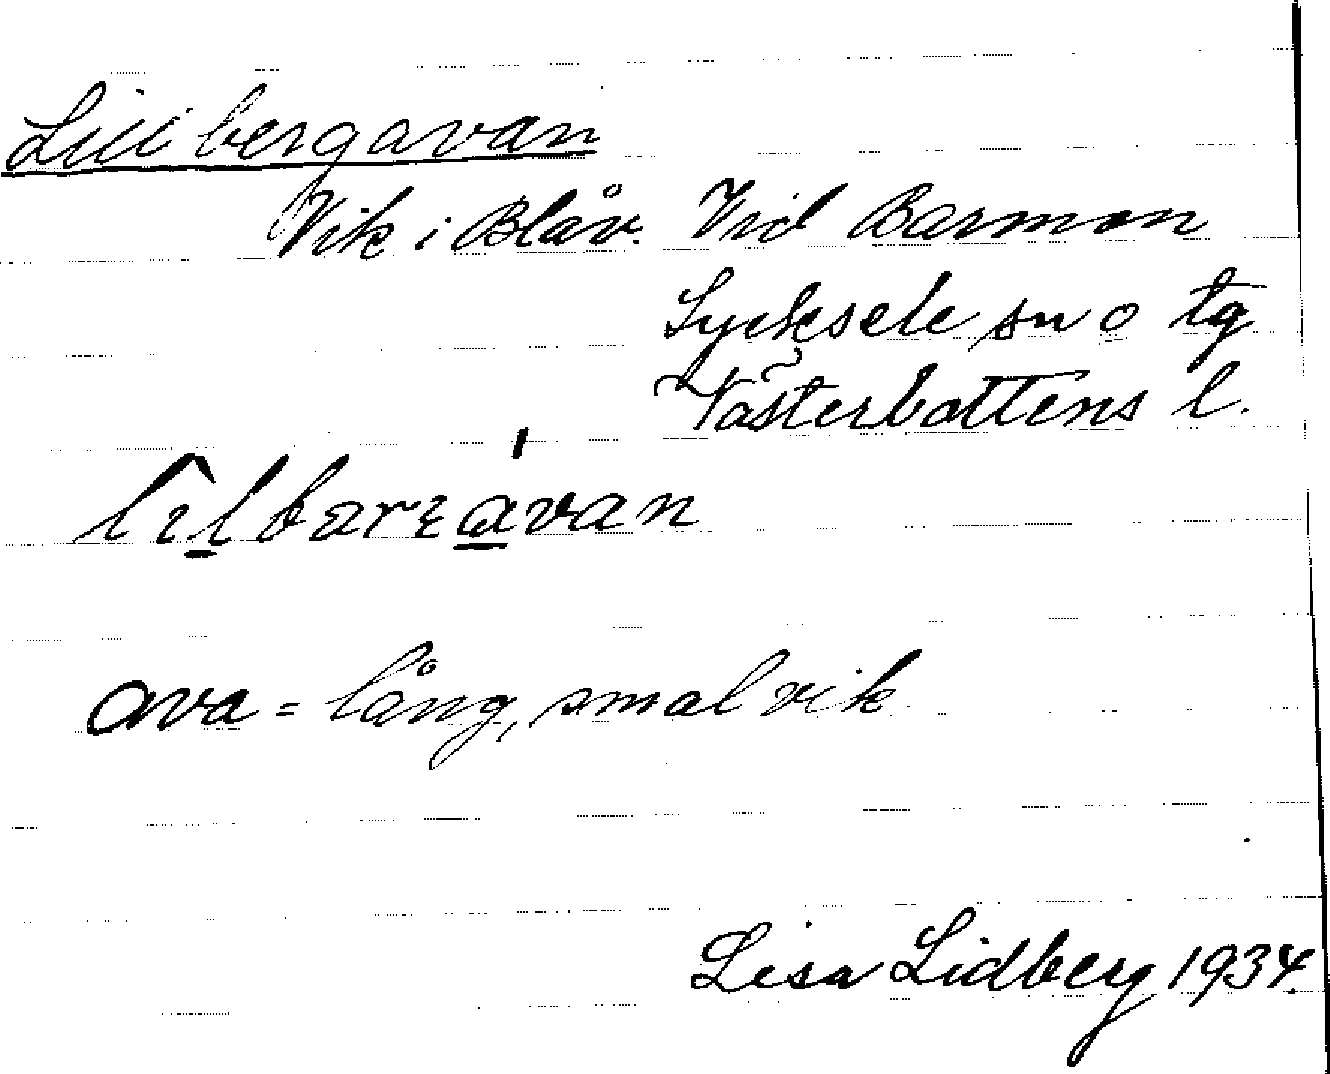 Lillbergavan
Vik i Blåv. Vid Barmon
Lycksele sn o tg
Västerbottens l.
ava = lång, smal vik
Lisa Lidberg 1934.